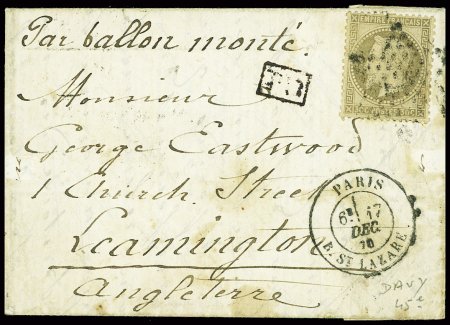 Par ballon monté
EMPIRE FRANÇAIS
Monsieur
George Eastwood
1 Church Street
Leamington
Angleterre
PARIS
17
DEC.
70
R. ST LAZARE
DAVY
45€